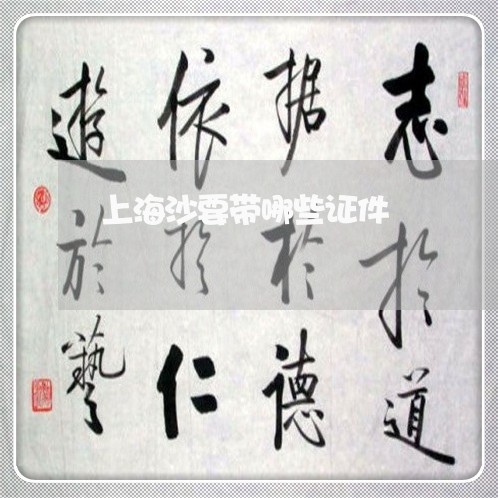 志於道
据於德
依於仁
遊於藝
上海沙要带哪些证件